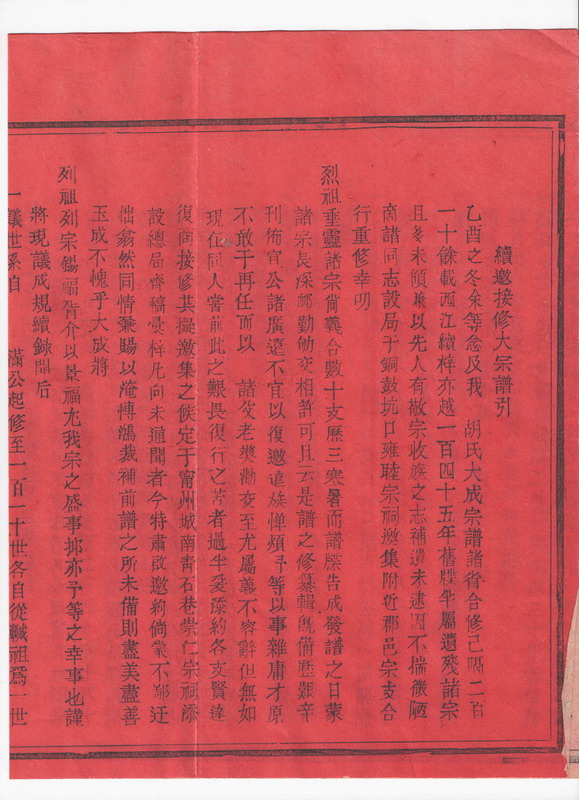 續邀接修大宗譜引
乙酉之冬余等念及我 胡氏大成宗譜諸省合修已隔二百
一十餘載西江續梓亦越一百四十五年舊牒半屬遺殘諸宗
且多未領兼以先人有敬宗收族之志補遺未逮因不揣微陋
商諸同志設局于銅鼓坑口雍睦宗祠邀集附近郡邑宗支合
行重修幸叨
烈祖垂靈諸宗尚義合數十支歷三寒暑而譜牒告成發譜之日蒙
諸宗長深邮勤勉交相許可且云是譜之修纂輯既備歷艱辛
刊佈宜公諸廣遠不宜以復邀遠族憚煩予等以事雜庸才原
不敢于再任而以 諸父老獎勸交至尤屬義不容辭但無如
現在同人當前此之艱畏復行之苦者過半爰添約各支賢達
復商接修其擬邀集之候定于甯州城南靑石巷崇仁宗祠添
設總局齊稿彙梓凡向未通聞者今特肅啟邀約倘蒙不鄙迂
拙翕然同情兼賜以淹博鴻裁補前譜之所未備則盡美盡善
玉成不愧乎大成將
列祖列宗錫福胥介以景福尤我宗之盛事抑亦予等之幸事也謹
將現議成規續錄開后
一議世系自 滿公起修至一百一十世各自從鹹祖爲一世